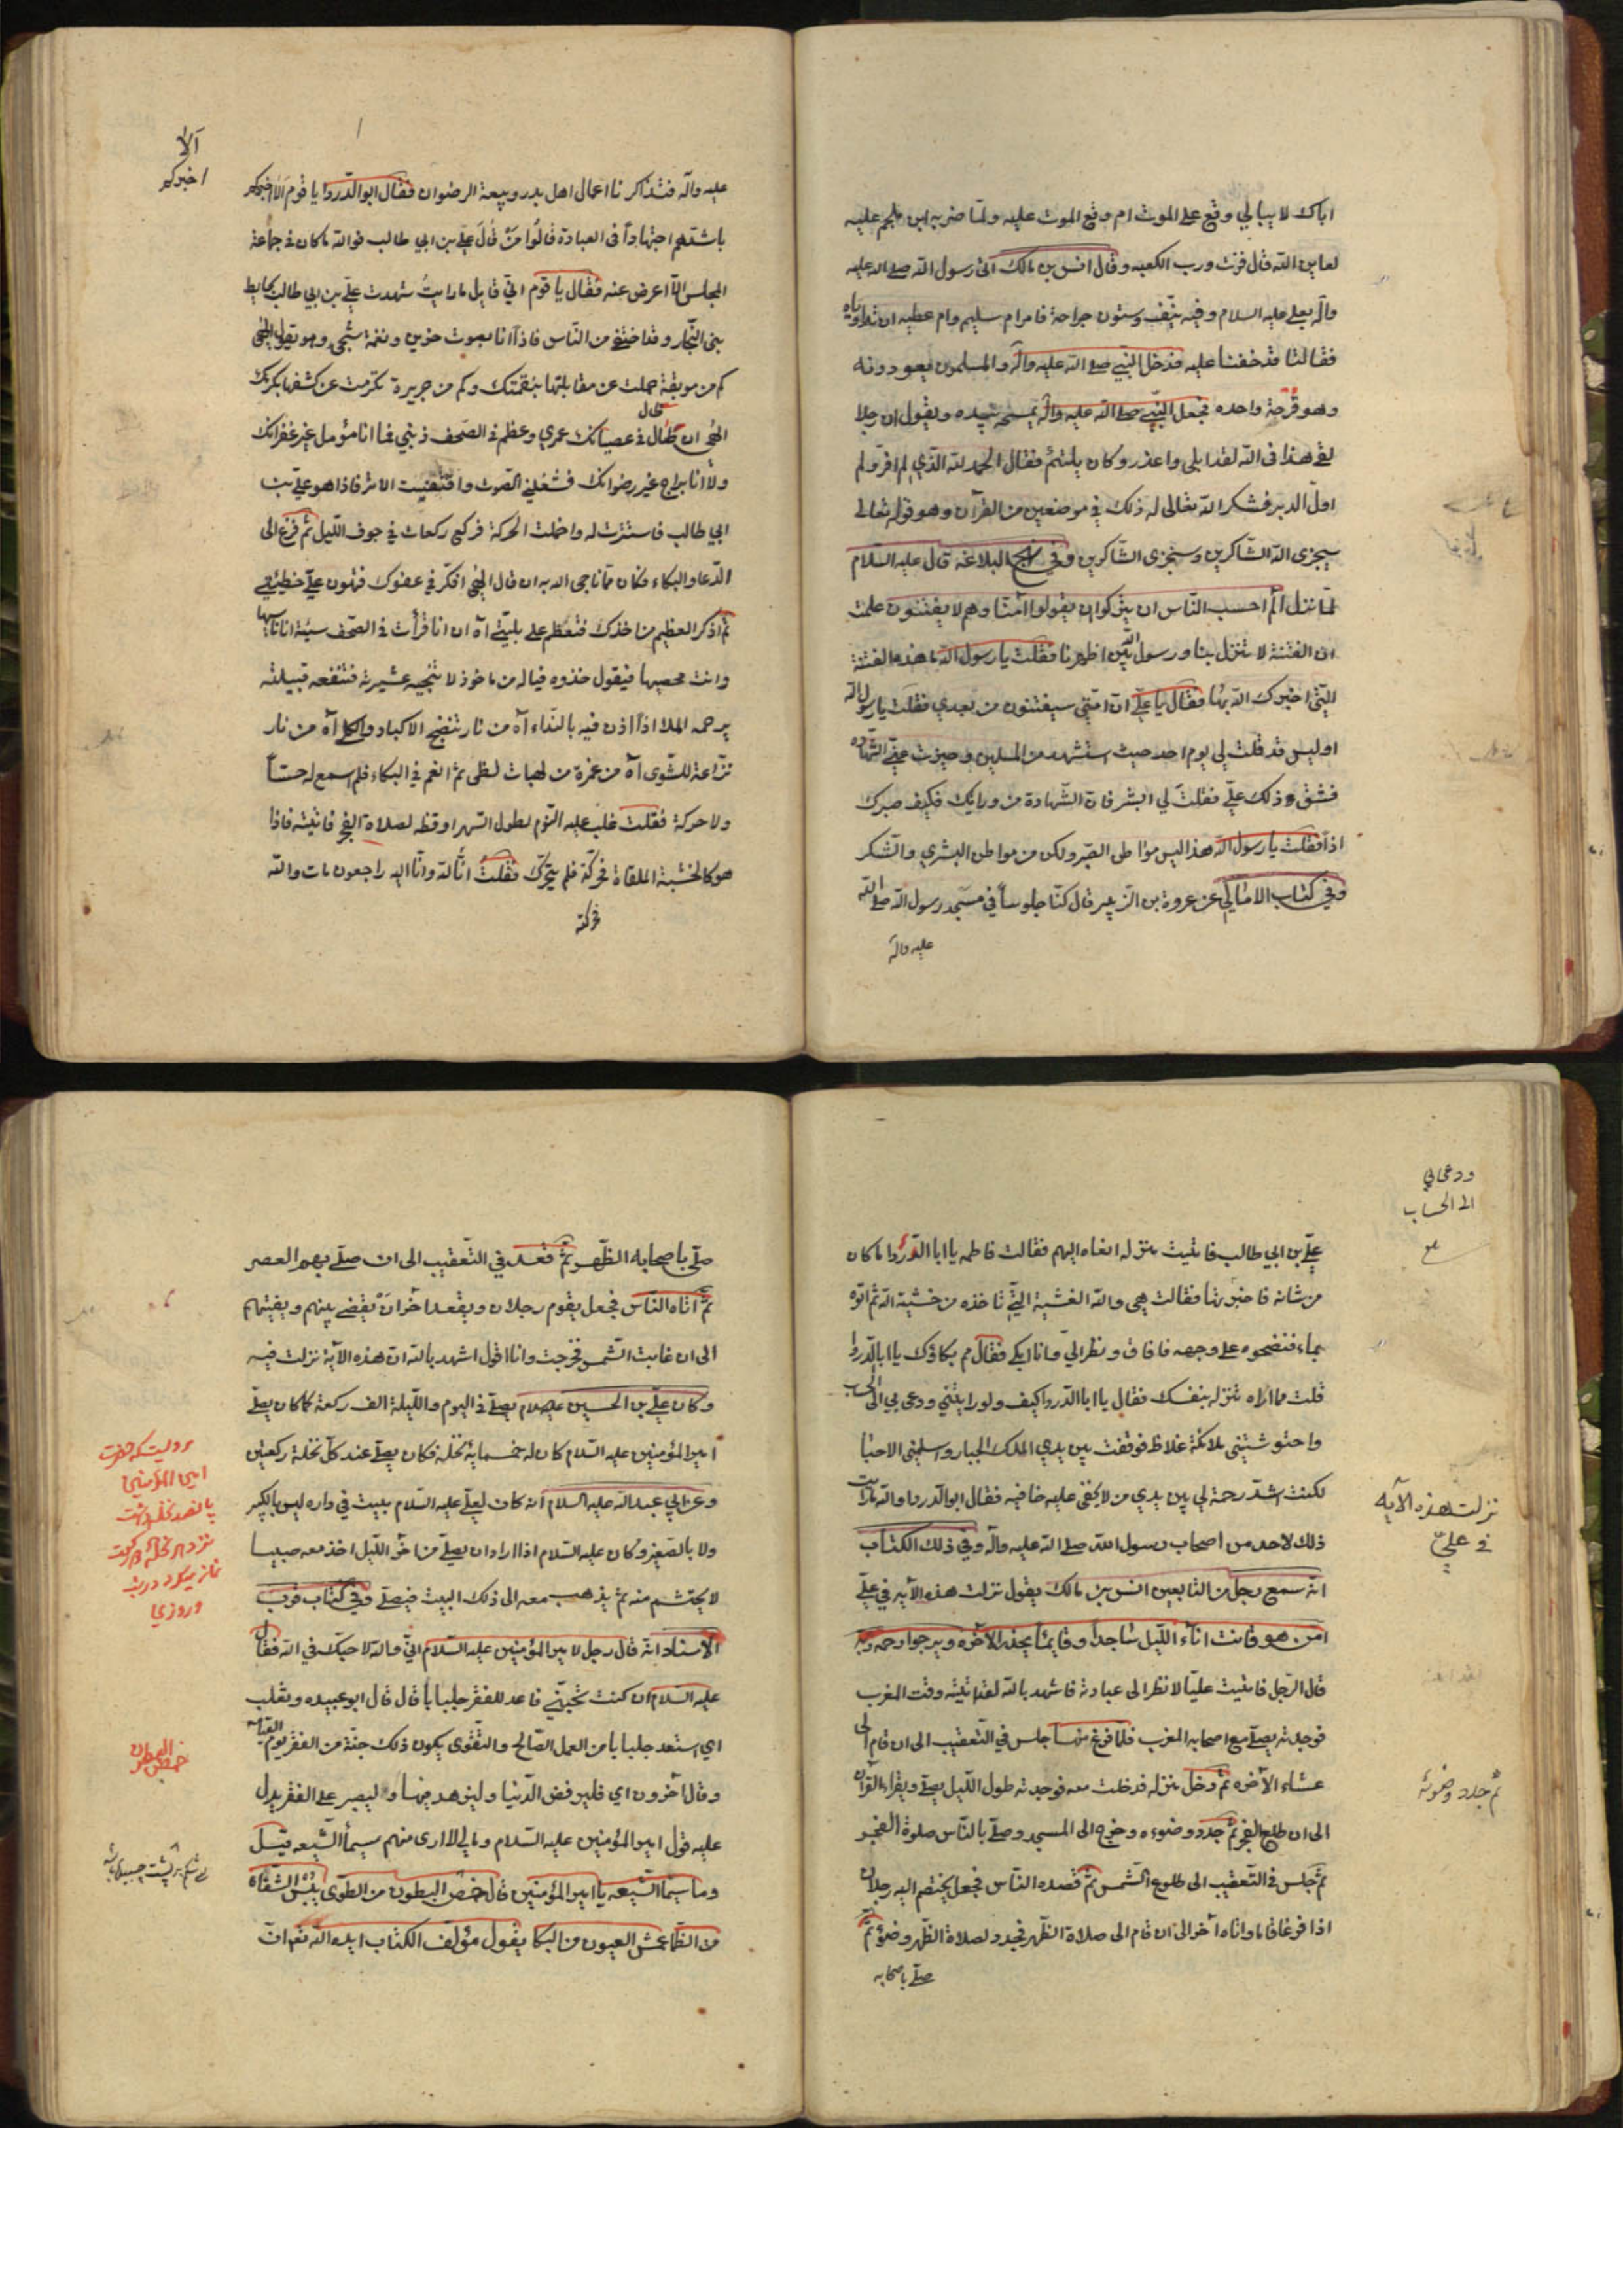 اباك لا يبالي وقع على الموت ام وقع الموت عليه ولما ضربه ابن ملجم عليه
لعاين الله قال فزت ورب الكعبه وقال انس بن مالك اتى رسول الله صلى الله عليه
واله بعلي عليه السلام وفيه نيّف وستون جراحة فامر ام سليم وام عطيه ان تداوياه
فقالتا قد خفنا عليه فدخل النبي صلى الله عليه وآله والمسلمون يعودونه
وهو قرحة واحده فجعل النبي صلى الله عليه واله يمسحه بيده ويقول ان رجلا
لقى هذا فى الله لقد ابلى واعذر وكان يلتئم فقال الحمد لله الذي لم افر ولم
اول الدبر فشكر الله تعالى له ذلك في موضعين من القرآن وهو قوله تعالى
سيجزى الله الشاكرين وسنجزى الشاكرين وفي نهج البلاغه قال عليه السلام
لما نزل الم احسب الناس ان يتركوا ان يقولوا آمنا وهم لا يفتنون علمت
ان الفتنة لا تنزل بنا ورسول الله بين اظهرنا فقلت يا رسول الله ما هذه الفتنة
التي اخبرك الله بها فقال يا علي ان امتي سيفتنون من بعدي فقلت يا رسول الله
اوليس قد قلت لي يوم احد حيث استشهد من المسلمين وحيزت عني الشهاده
فشق ذلك علي فقلت لي ابشر فان الشهادة من ورائك فكيف صبرك
اذاً فقلت يا رسول الله هذا ليس من مواطن الصبر ولكن من مواطن البشري والشكر
وفي كتاب الامالي عن عروة بن الزبير قال كنا جلوساً في مسجد رسول الله صلى الله
عليه واله
آلا
اخبركم
عليه وآله فتذاكرنا اعمال اهل بدر وبيعة الرضوان فقال ابو الدردا يا قوم الا اخبركم
باشدهم اجتهاداً فى العبادة قالوا من قال علي بن ابي طالب فوالله ما كان في جماعة
المجلس الا اعرض عنه فقال يا قوم اني قايل ما رايت شهدت علي بن ابي طالب بحايط
بنى النجار وقد اختفى من الناس فاذا انا بصوت حزين ونغمة شجى وهو يقول الهي
كم من موبقة حملت عن مقابلتها بنقمتك وكم من جريرة تكرمت عن كشفها بكرمك
طال
الهى ان طال في عصيانك عمري وعظم فى الصحف ذنبي فما انا مؤمل غير غفرانك
ولا انا براج غير رضوانك فشغلني الصوت واقتفيت الاثر فاذا هو علي بن
ابي طالب فاستترت له واخملت الحركة فركع ركعات في جوف الليل ثم فرغ الى
الدعا والبكاء فكان مما ناجى الله به ان قال الهى افكر في عفوك فتهون علي خطيئتي
ثم اذكر العظيم من اخذك فتعظم على بليتي آه ان انا قرأت فى الصحف سيئة انا ناسيها
وانت محصيها فيقول خذوه فياله من ماخوذ لا تنجيه عشيرته ولا تنفعه قبيلته
يرحمه الملا اذا اذن فيه بالنداء آه من نار تنضج الاكباد والكلى آه من نار
نزاعة للشوى آه من غمرة من لهبات لظى ثم انغمر في البكاء فلم اسمع له حساً
ولا حركة فقلت غلب عليه النوم لطول السهر اوقظه لصلاة الفجر فاتيته فاذا
هو كالخشبة الملقاة فحركته فلم يتحرك فقلت انا لله وانا اليه راجعون مات والله
فحركته
ودعى بي
الى الحساب
علي بن ابي طالب فاتيت منزله انعاه اليهم فقالت فاطمه يا ابا الدردا ما كان
من شانه فاخبرتها فقالت هي والله الغشية التي تاخذه من خشية الله ثم اتوه
بماء فنضحوه على وجهه فافاق ونظر الي وانا ابكي فقال مم بكاؤك يا ابا الدردا
قلت مما اراه تنزله بنفسك فقال يا ابا الدردا كيف ولو رايتني ودعى بي الى الحساب
واحتوشتني ملائكة غلاظ فوقفت بين يدي الملك الجبار واسلمتني الاحبا
لكنت اشد رحمة لي بين يدي من لا يخفى عليه خافيه فقال ابو الدردا والله ما رايت
ذلك لاحد من اصحاب رسول الله صلى الله عليه وآله وفي ذلك الكتاب
نزلت هذه الآيه
في علي
انه سمع رجل من التابعين انس بن مالك يقول نزلت هذه الآيه في علي
امن هو قانت اناء الليل ساجداً وقايماً يحذر الآخره ويرجوا رحمه ربه
قال الرجل فاتيت عليا لانظر الى عبادته فاشهد بالله لقد اتيته وقت المغرب
فوجدته يصلي مع اصحابه المغرب فلما فرغ منها جلس في التعقيب الى ان قام الى
عشاء الآخره ثم دخل منزله فدخلت معه فوجدته طول الليل يصلي ويقراء القرآن
ثم جدد وضوئه
الى ان طلع الفجر ثم جدد وضوءه وخرج الى المسجد وصلى بالناس صلوة الفجر
ثم جلس في التعقيب الى طلوع الشمس ثم قصده الناس فجعل يختصم اليه رجلان
اذا فرغا قاما واتاه آخر الى ان قام الى صلاة الظهر فجدد لصلاة الظهر وضوء ثم
صلى باصحابه
صلى باصحابه الظهر ثم قعد في التعقيب الى ان صلى بهم العصر
ثم اتاه الناس فجعل يقوم رجلان ويقعد آخران يقضي بينهم ويفتيهم
الى ان غابت الشمس فخرجت وانا اقول اشهد بالله ان هذه الآية نزلت فيه
وكان علي بن الحسين عليه السلام يصلي في اليوم والليلة الف ركعة كما كان يصلي
امير المؤمنين عليه السلام كان له خمسماية نخلة فكان يصلي عند كل نخلة ركعتين
مرويست كه حضرت
امير المؤمنين
پانصد نخل داشت
نزد هر نخله دو ركعت
نماز ميكرد در شب
وروزي
وعن ابي عبد الله عليه السلام انه كان لعلي عليه السلام بيت في داره ليس بالكبير
ولا بالصغير وكان عليه السلام اذا اراد ان يصلي من آخر الليل اخذ معه صبيا
لا يحتشم منه ثم يذهب معه الى ذلك البيت فيصلي وفي كتاب قرب
الاسناد انه قال رجل لامير المؤمنين عليه السلام اني والله لاحبك في الله فقال
عليه السلام ان كنت تحبني فاعد للفقر جلبابا قال قال ابو عبيده وتعلب
اي استعد جلبابا من العمل الصالح والتقوى يكون ذلك جنة من الفقر يوم القيامه
خمص البطون
وقال آخرون اي فليرفض الدنيا وليزهد فيها وليصبر على الفقر يدل
عليه قول امير المؤمنين عليه السلام ومالي لا ارى منهم سيما الشيعه قيل
وما سيما الشيعه يا امير المؤمنين قال خمص البطون من الطوى يبس الشفاه
من الظما عمش العيون من البكا يقول مؤلف الكتاب ايده الله نعم ان